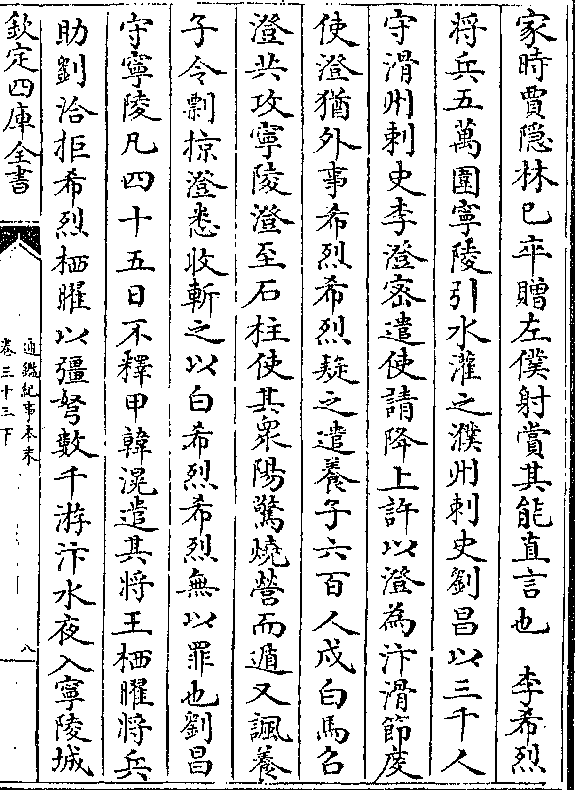 家時賈隠林已卒贈左僕射賞其能直言也　李希烈
将兵五萬圍寧陵引水灌之濮州刺史劉昌以三千人
守滑州刺史李澄密遣使請降上許以澄為汴滑節度
使澄猶外事希烈希烈疑之遣養子六百人戍白馬召
澄共攻寧陵澄至石柱使其衆陽驚燒營而遁又諷養
子令剽掠澄悉收斬之以白希烈希烈無以罪也劉昌
守寧陵凡四十五日不釋甲韓滉遣其將王栖曜将兵
助劉洽拒希烈栖曜以彊弩數千游汴水夜入寧陵城
欽定四庫全書
通鑑紀事本末
卷三十三下
八